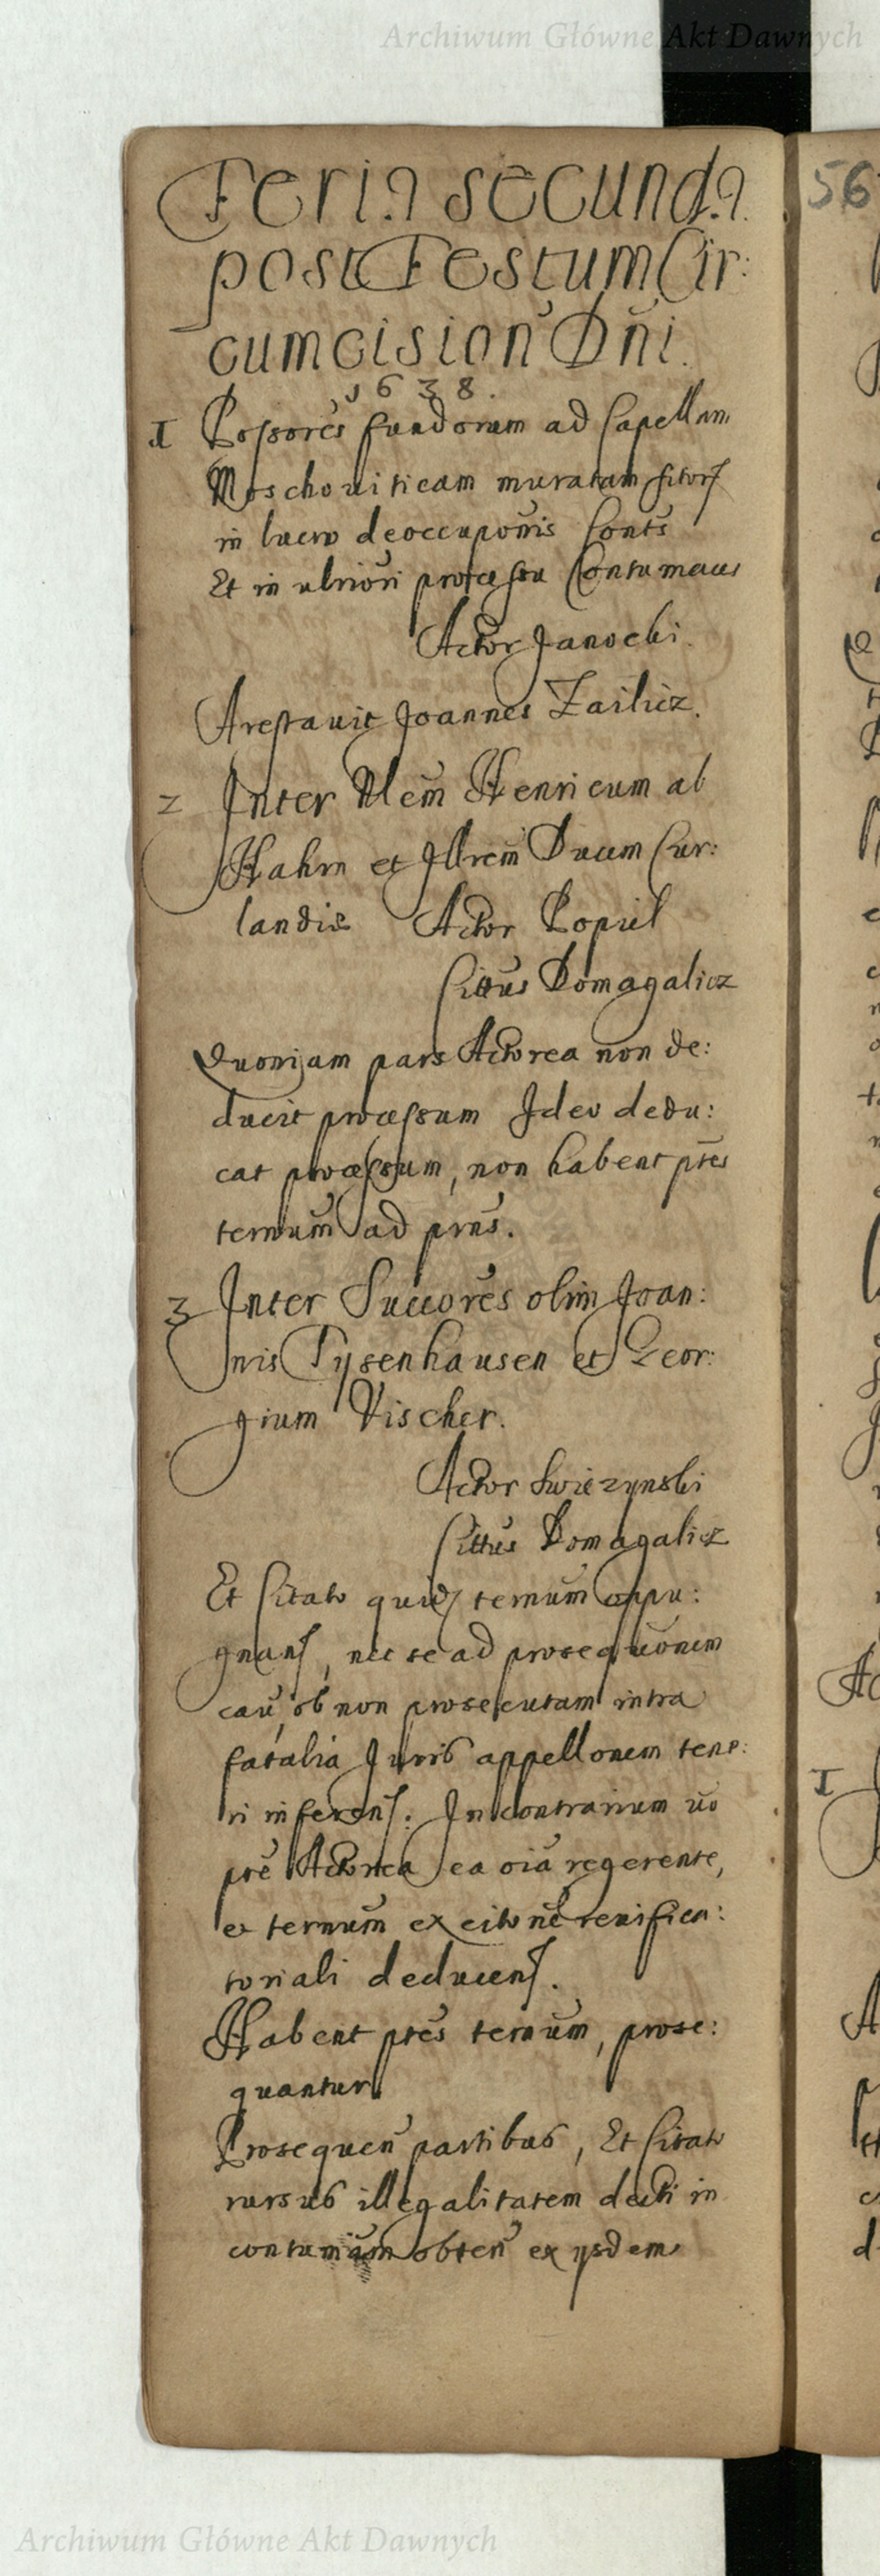 Archiwum Główne Akt Dawnych
Feria secunda
post Festum Cir:
cumcision Dni.
1638.
56
1 Possores fundorum ad Capellam
Moschouiticam muratam sitorum
in lucro deoccuponis Conts
Et in ulriori processu Contumaces
Actor Janocki.
Arestauit Joannes Zailicz.
2 Inter Nlem Henricum ab
Hahn et Illrem Ducem Cur:
landie Actor Popiel
Cittus Domagalicz
Quoniam pars Actorea non de:
ducit processum Ideo dedu:
cat processum, non habent ptes
ternum ad pns.
3 Inter Succores olim Joan:
nis Tysenhausen et Geor:
gium Vischer.
Actor Swiezynski
Cittus Domagalicz
Et Citato quidem ternum oppu:
gnan, nec se ad prosequonem
cau ob non prosecutam intra
fatalia Juris appellonem tene:
ri inferen. In contrarium uo
pte Actorea ea oia regerente,
et ternum ex citone reuifica:
toriali deducen.
Habent ptes ternum, prose:
quantur.
Prosequen partibus, Et Citato
rursus illegalitatem decti in
contumam obten ex ysdem
1
Archiwum Główne Akt Dawnych